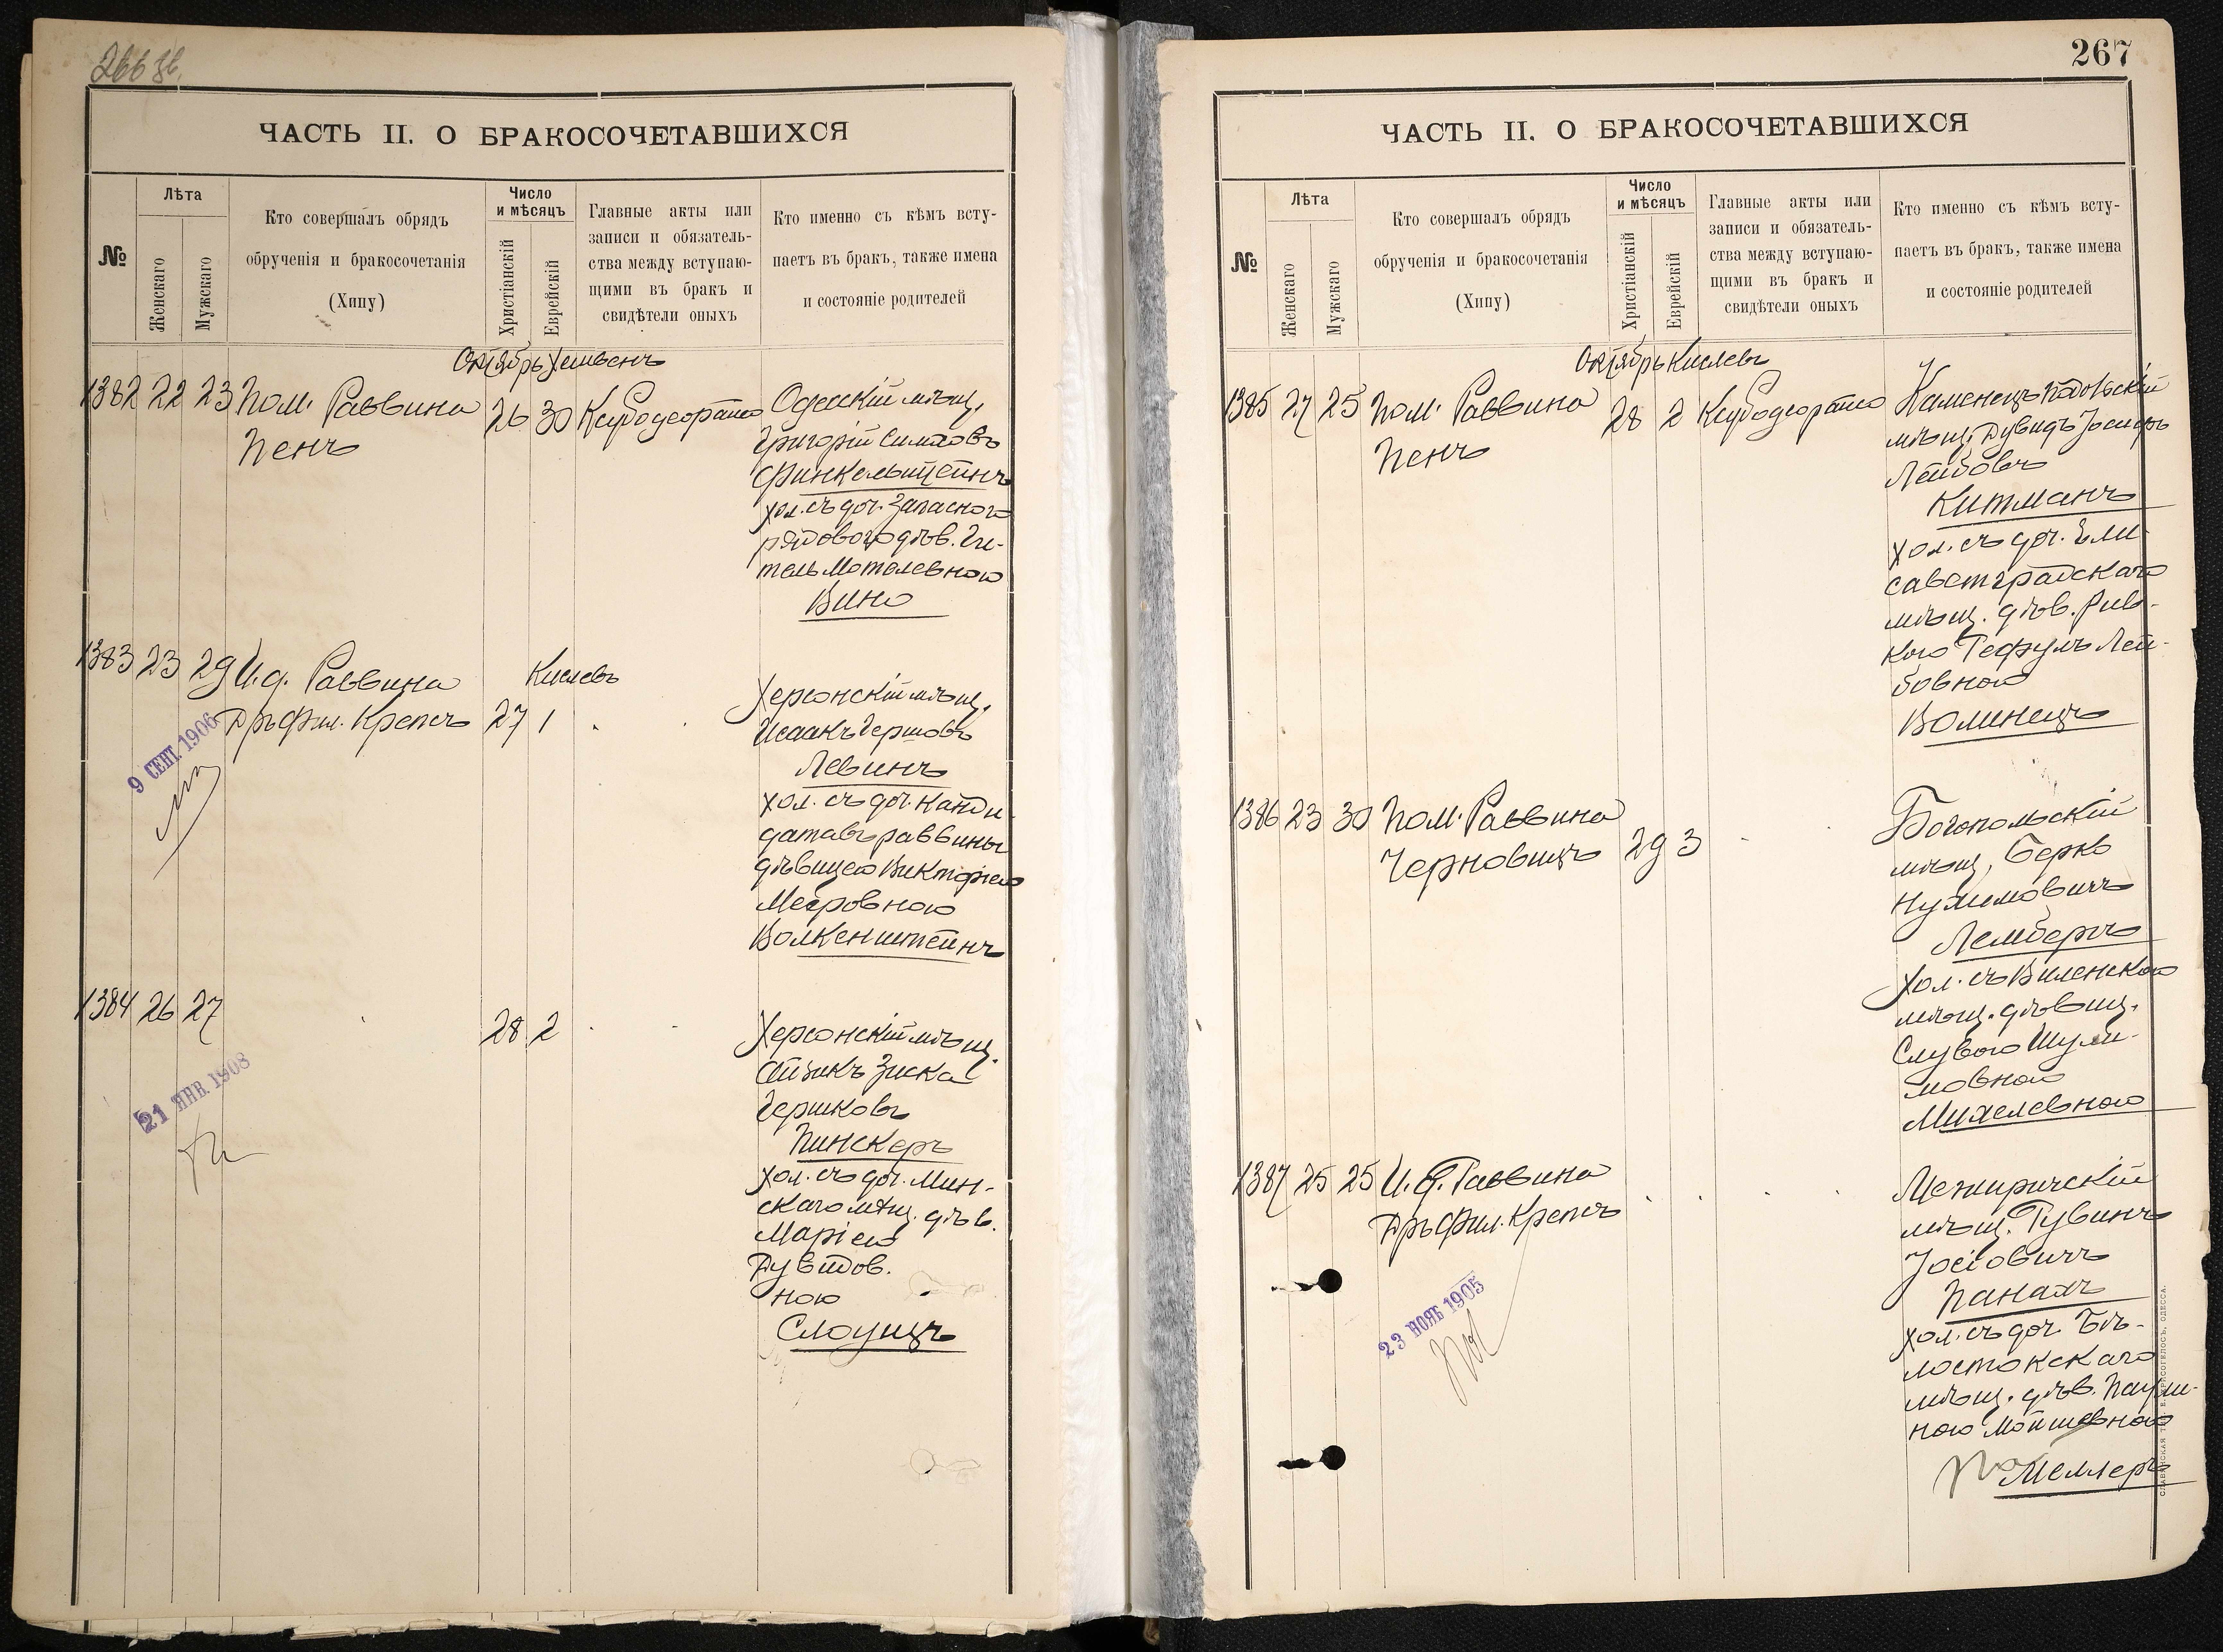 266 зв.
ЧАСТЬ II. О БРАКОСОЧЕТАВШИХСЯ
№
Лѣта
Женскаго
Мужскаго
Кто совершалъ обрядъ
обрученія и бракосочетанія
(Хипу)
Число
и мѣсяцъ
Христіанскій
Еврейскій
Главные акты или
записи и обязатель-
ства между вступаю-
щими въ бракъ и
свидѣтели оныхъ
Кто именно съ кѣмъ всту-
паетъ въ бракъ, также имена
и состояніе родителей
Октябрь Хешвенъ
1382 22 23 Пом. Раввина
Пенъ
26 30
Одесскій мѣщ.
Григорій Симховъ
Финкельштейнъ
хол. съ доч. запасного
рядового дѣв. Ги-
тель Мотелевною
Вино
1383 23 29 И. д. Раввина
Дръ Фил. Крепсъ
Кислевъ
27 1
Херсонскій мѣщ.
Исаакъ Гершовъ
Левинъ
хол. съ доч. канди-
датавъ раввины
дѣвицею Викторіею
Мееровною
Волкенштейнъ
9 СЕНТ. 1906
1384 26 27
28 2
Херсонскій мѣщ.
Айзикъ Зиска
Гершковъ
Пинскеръ
хол. съ доч. Мин-
скаго мѣщ. дѣв.
Маріею
Дувидов.
ною
Слоущъ
21 ЯНВ. 1908
267
ЧАСТЬ II. О БРАКОСОЧЕТАВШИХСЯ
№
Лѣта
Женскаго
Мужскаго
Кто совершалъ обрядъ
обрученія и бракосочетанія
(Хипу)
Число
и мѣсяцъ
Христіанскій
Еврейскій
Главные акты или
записи и обязатель-
ства между вступаю-
щими въ бракъ и
свидѣтели оныхъ
Кто именно съ кѣмъ всту-
паетъ въ бракъ, также имена
и состояніе родителей
Октябрь Кислевъ
1385 27 25 Пом. Раввина
Пенъ
28 2
Каменецъ Подольскій
мѣщ. Дувидъ Іосифъ
Лейбовъ
Китманъ
хол. съ доч. Ели-
саветградскаго
мѣщ. дѣв. Рив-
кою Лей-
бовною
Волинецъ
1386 23 30 Пом. Раввина
Черновицъ
29 3
Богопольскій
мѣщ. Берко
Нухимовичъ
Лембергъ
хол. съ Виленскою
мѣщ. дѣвиц.
Слувою Шули-
мовною
Михелевною
1387 25 25 И. д. Раввина
Дръ Фил. Крепсъ
Межиричскій
мѣщ. Рувинъ
Іосіовичъ
Панахъ
хол. съ доч. Бѣ-
лостокскаго
мѣщ. дѣв. Паули-
ною Мойшевною
Меллеръ
23 НОЯБ 1905